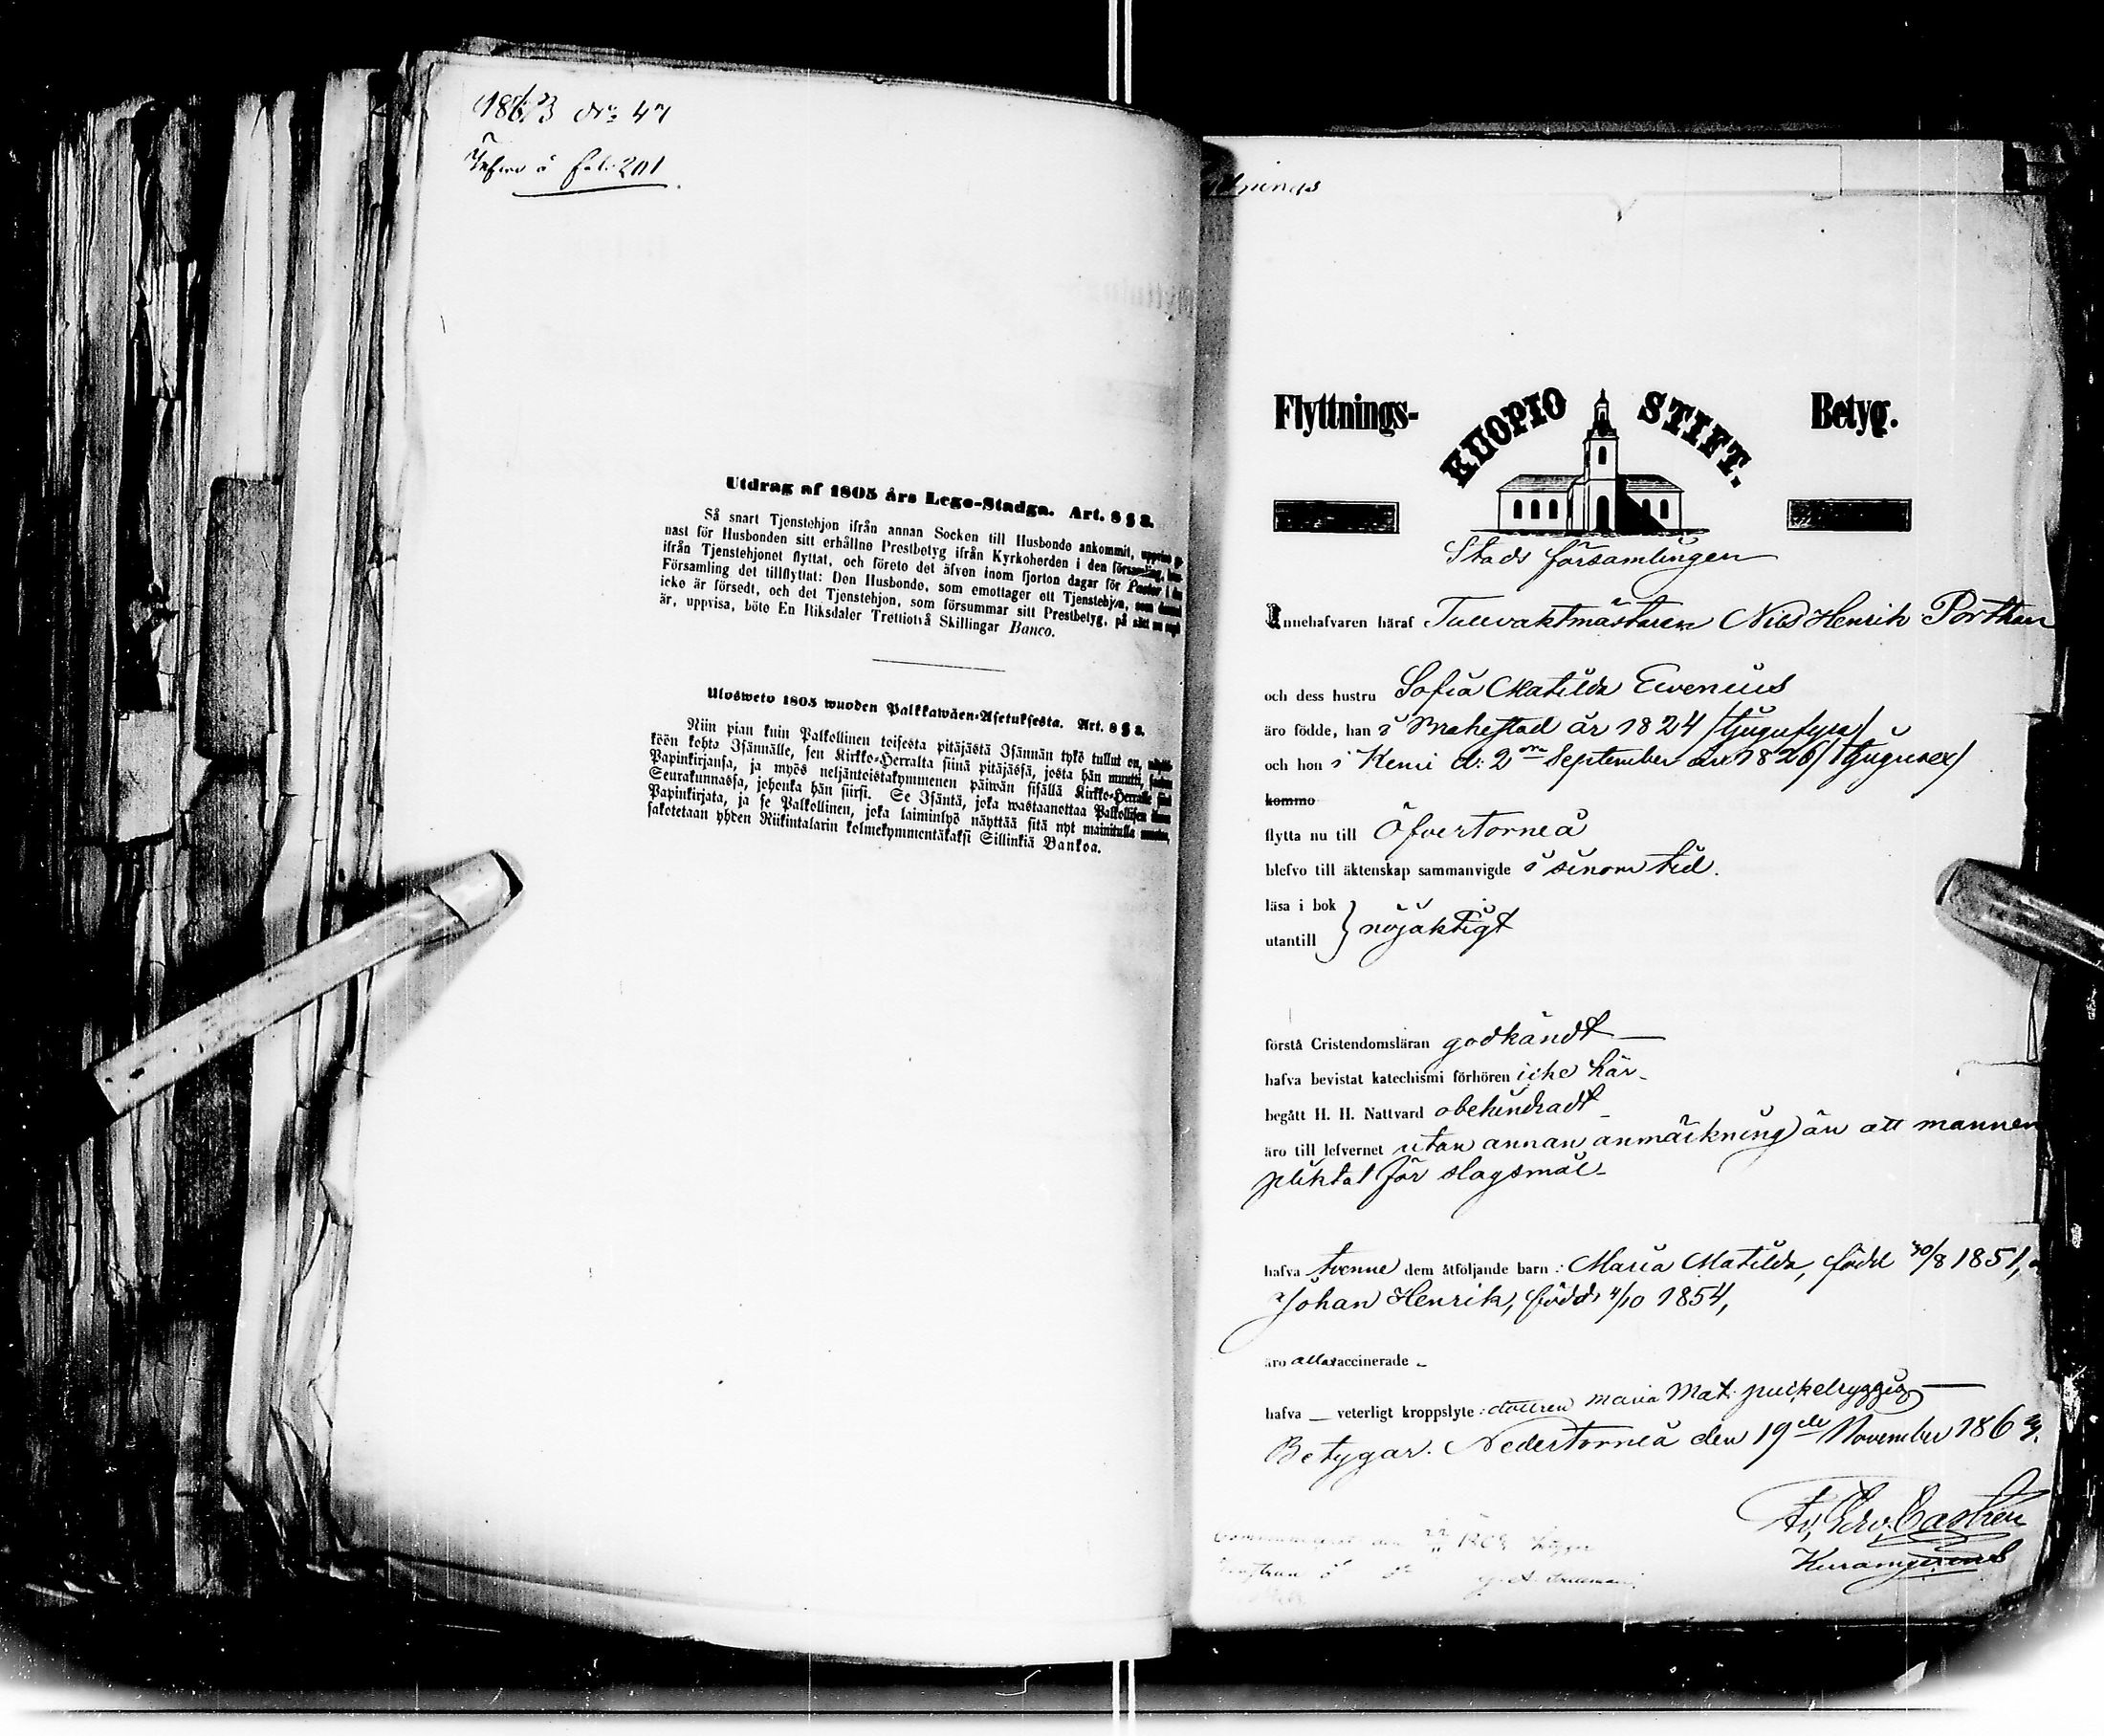 1863 No 47
Infun å fol: 201
Utdrag af 1805 års Lego-Stadga. Art. 8 § 8.
Så snart Tjenstehjon ifrån annan Socken till Husbonde ankommit, uppvise
nast för Husbonden sitt erhållne Prestbetyg ifrån Kyrkoherden i den församling,
ifrån Tjenstehjonet flyttat, och förete det äfven inom fjorton dagar för Pastor i
Församling det tillflyttat: Den Husbonde, som emottager ett Tjenstehjon, som
icke är försedt, och det Tjenstehjon, som försummar sitt Prestbetyg, på sätt nu sagt
är, uppvisa, böte En Riksdaler Trettiotvå Skillingar Banco.
Ulosweto 1805 wuoden Palkkawäen-Asetuksesta. Art. 8 § 8.
Niin pian kuin Palkollinen toisesta pitäjästä Isännän tykö tullut on,
köön kohta Isännälle, sen Kirkko-Herralta siinä pitäjässä, josta hän muutti,
Papinkirjansa, ja myös neljäntoistakymmenen päiwän sisällä Kirkko-Herralle
Seurakunnassa, johonka hän siirsi. Se Isäntä, joka wastaanottaa Palkollisen
Papinkirjata, ja se Palkollinen, joka laiminlyö näyttää sitä nyt mainitulla
sakotetaan yhden Riikintalarin kolmekymmentäkaksi Sillinkiä Bankoa.
Flyttnings- KUOPIO STIFT. Betyg.
Stads församlingen
Innehafvaren häraf Tullvaktmästaren Nils Henrik Porthan
och dess hustru Sofia Matilda Ewenius
äro födde, han i Brahestad år 1824 /tjugufyra/
och hon i Kemi d: 2 September år 1826 /tjugusex/
komme
flytta nu till Öfvertorneå
blefvo till äktenskap sammanvigde i sinom tid.
läsa i bok
utantill } nöjaktigt
förstå Cristendomsläran godkändt
hafva bevistat katechismi förhören icke här
begått H. H. Nattvard obehindradt
äro till lefvernet utan annan anmärkning än att mannen
pliktat för slagsmål
hafva tvenne dem åtföljande barn: Maria Matilda, född 30/8 1851,
Johan Henrik, född 4/10 1854,
äro alla vaccinerade
hafva — veterligt kroppslyte: dottren Maria Mat: puckelryggig
Betygar. Nedertorneå den 19de November 1863.
Castrén